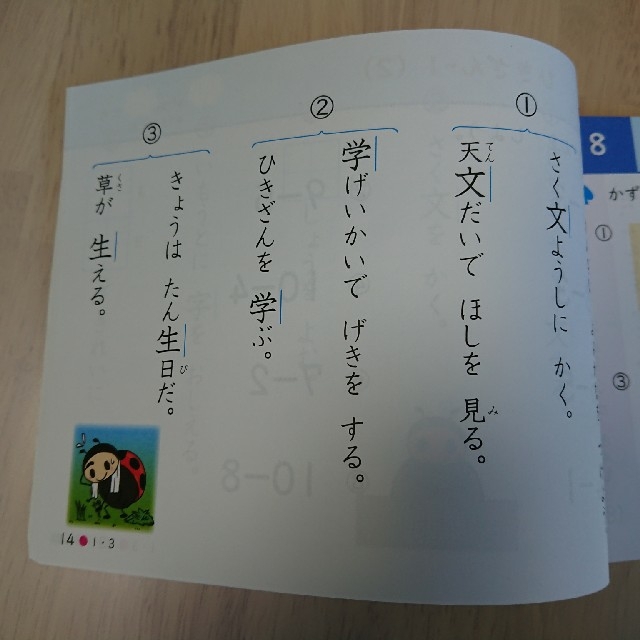 ①
さく文ようしに かく。
天文だいで ほしを 見る。
てん
み
②
学げいかいで げきを する。
ひきざんを 学ぶ。
③
きょうは たん生日だ。
び
草が 生える。
くさ
14 1・3
8
かず
①
③